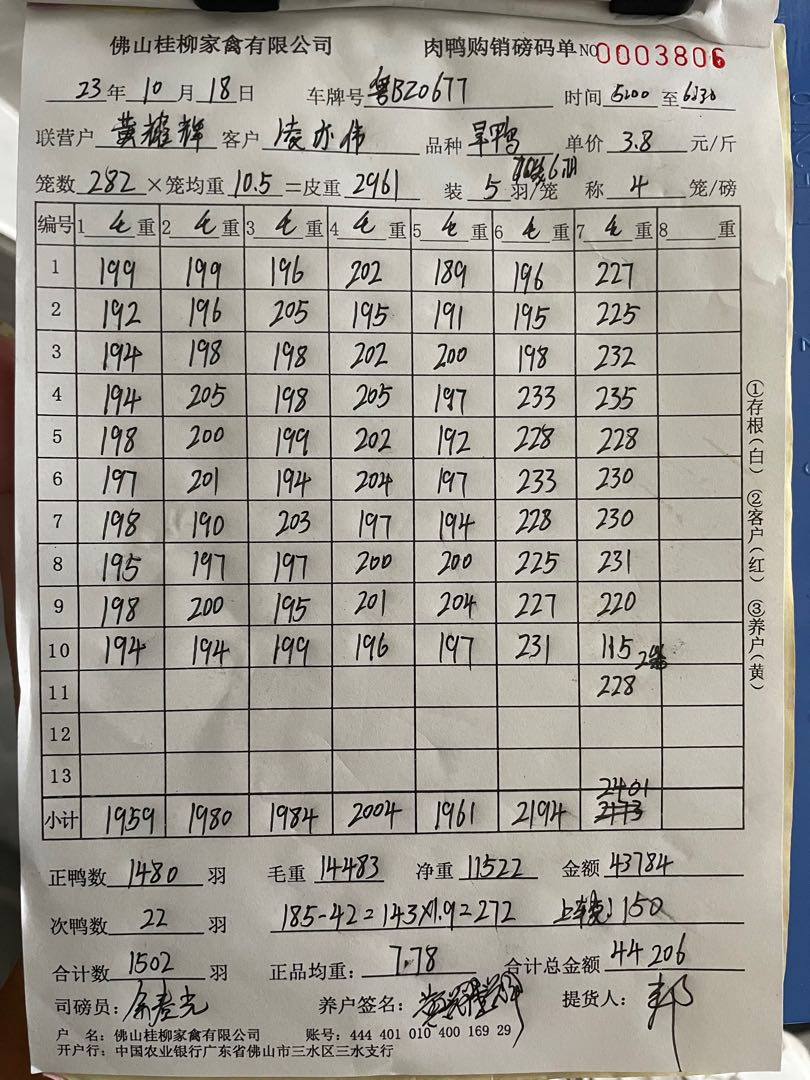 佛山桂柳家禽有限公司 肉鸭购销磅码单 NO 0003806
23年10月18日 车牌号 粤BZ0677 时间 5:00 至 6:30
联营户 黄耀辉 客户 凌亦伟 品种 旱鸭 单价 3.8 元/斤
笼数 282 ×笼均重 10.5 =皮重 2961 装 5 羽/笼 称 4 笼/磅
编号 1 毛 重 2 毛 重 3 毛 重 4 毛 重 5 毛 重 6 毛 重 7 毛 重 8 重
1 199 199 196 202 189 196 227
2 192 196 205 195 191 195 225
3 194 198 198 202 200 198 232
4 194 205 198 205 197 233 235
5 198 200 199 202 192 228 228
6 197 201 194 204 197 233 230
7 198 190 203 197 194 228 230
8 195 197 197 200 200 225 231
9 198 200 195 201 204 227 220
10 194 194 199 196 197 231 115 2笼
11 228
12
13
小计 1959 1980 1984 2004 1961 2194 2401
正鸭数 1480 羽 毛重 14483 净重 11522 金额 43784
次鸭数 22 羽 185-42=143×1.9=272 上车费:150
合计数 1502 羽 正品均重: 7.78 合计总金额 44206
司磅员: 养户签名: 提货人: 邦
户 名: 佛山桂柳家禽有限公司 账号: 444 401 010 400 169 29
开户行: 中国农业银行广东省佛山市三水区三水支行
①存根(白) ②客户(红) ③养户(黄)